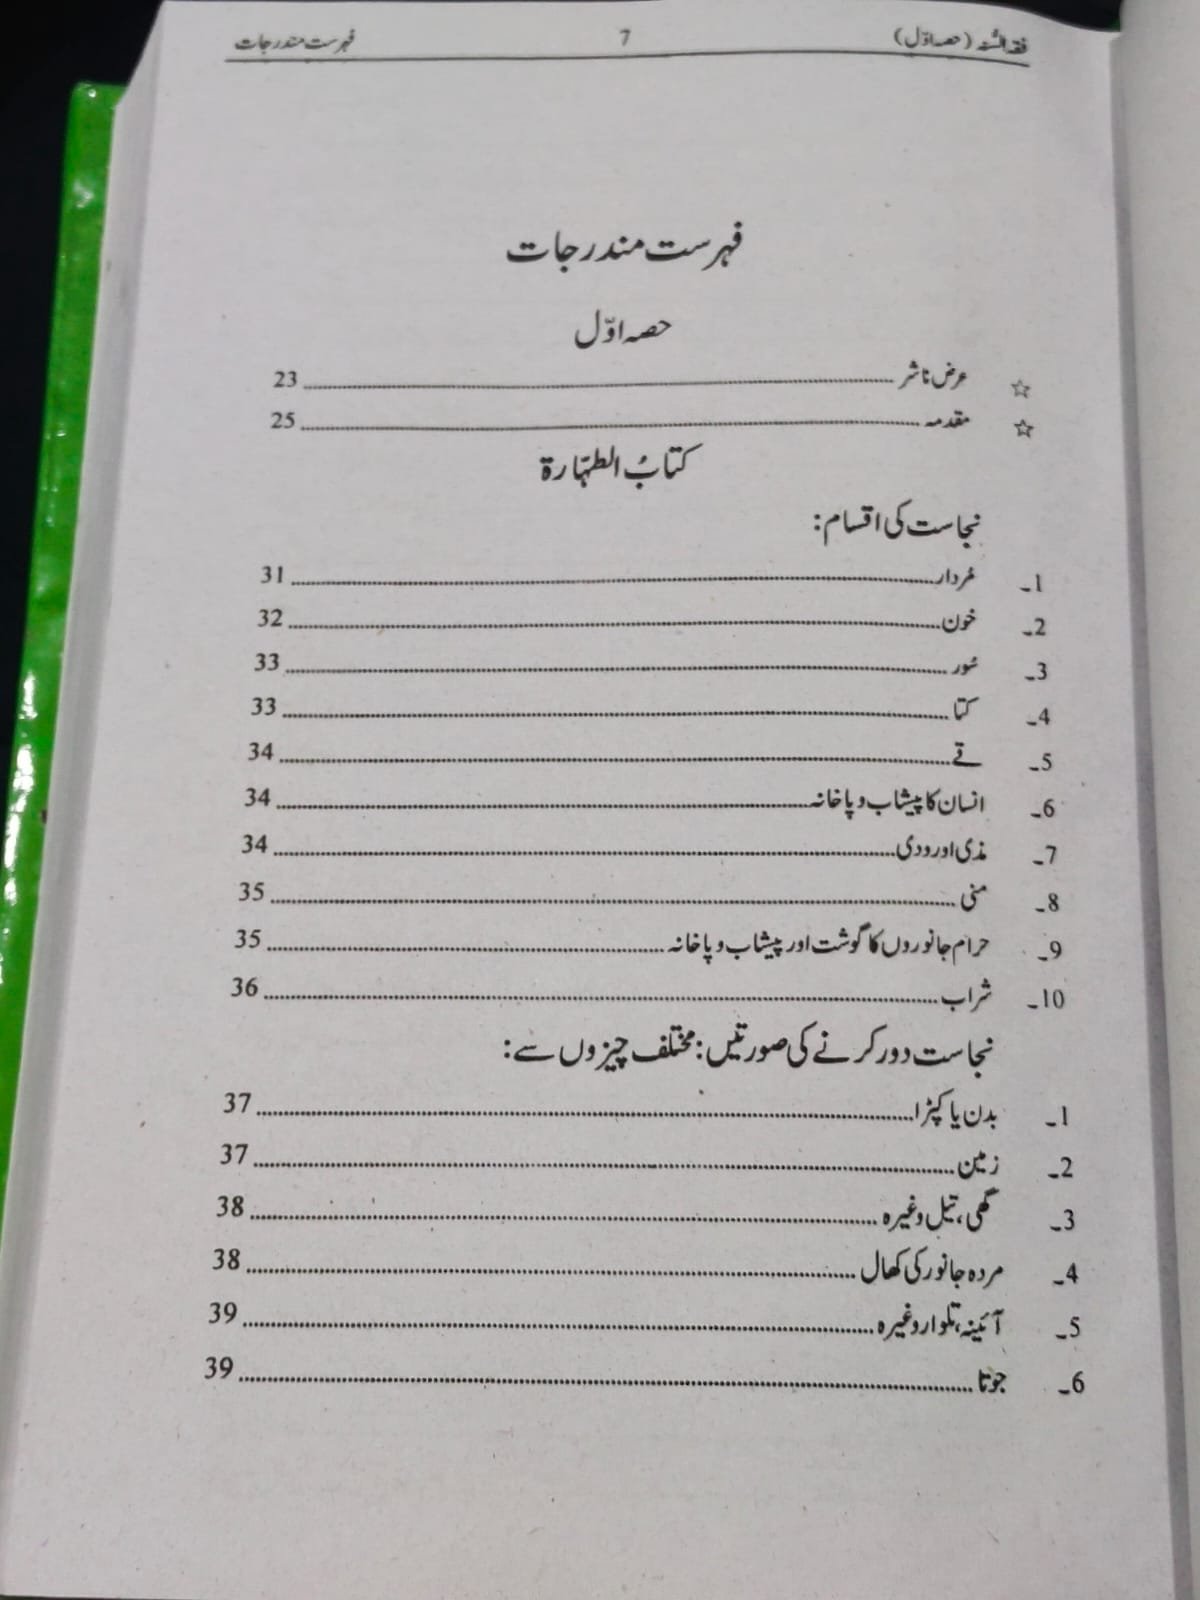 فقہ السنہ (حصہ اوّل) 7 فہرست مندرجات
فہرست مندرجات
حصہ اوّل
☆ عرض ناشر 23
☆ مقدمہ 25
کتابُ الطہّارۃ
نجاست کی اقسام:
1۔ مُردار 31
2۔ خون 32
3۔ سُور 33
4۔ کتا 33
5۔ قے 34
6۔ انسان کا پیشاب و پاخانہ 34
7۔ مذی اور ودی 34
8۔ منی 35
9۔ حرام جانوروں کا گوشت اور پیشاب و پاخانہ 35
10۔ شراب 36
نجاست دور کرنے کی صورتیں: مختلف چیزوں سے:
1۔ بدن یا کپڑا 37
2۔ زمین 37
3۔ گھی، تیل وغیرہ 38
4۔ مردہ جانور کی کھال 38
5۔ آئینہ، تلوار وغیرہ 39
6۔ جوتا 39